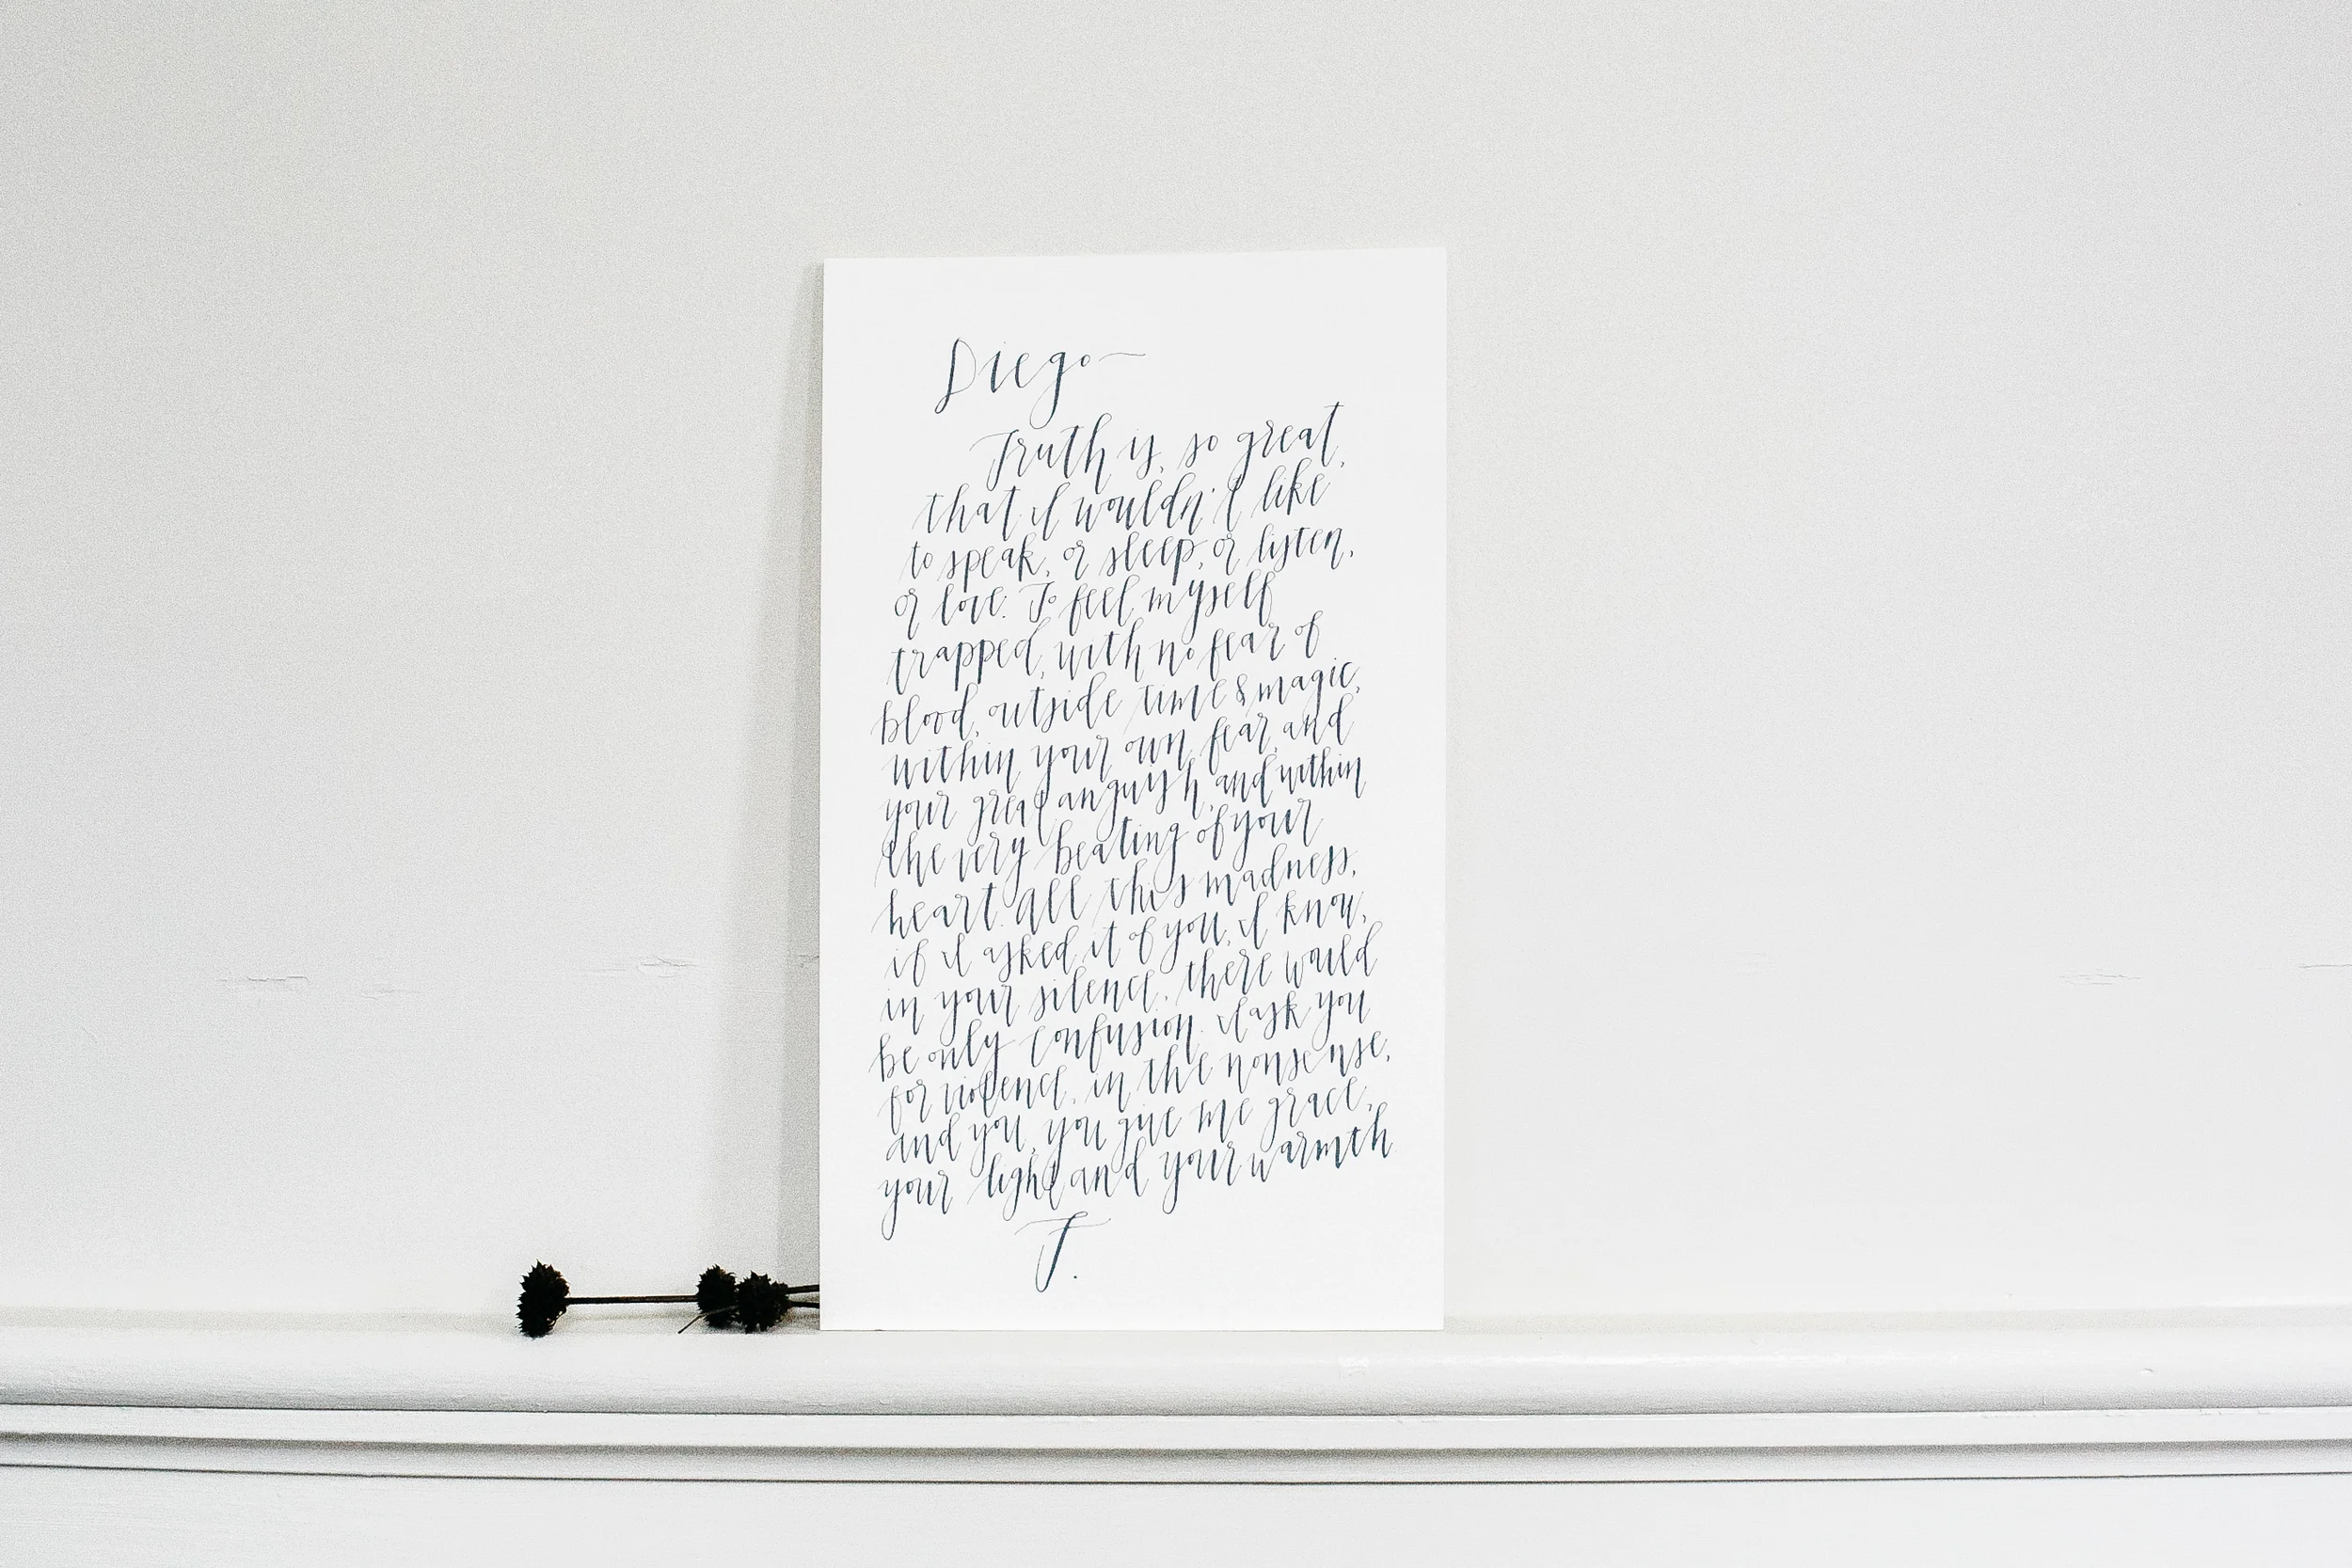 Diego—
Truth is, so great,
that I wouldn't like
to speak, or sleep, or listen,
or love. To feel myself
trapped, with no fear of
blood, outside time & magic,
within your own fear, and
your great anguish, and within
the very beating of your
heart. All this madness,
if I asked it of you, I know,
in your silence, there would
be only confusion. I ask you
for violence, in the nonsense,
and you, you give me grace,
your light and your warmth
F.